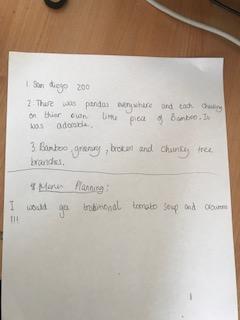 1. San diego zoo
2. There was pandas everywhere and each chewing
on thier own little piece of Bamboo. It
was adorable.
3. Bamboo, greenery, broken and chunky tree
branches.
Menu Planning:
I would get traditional tomato soup and
!!!